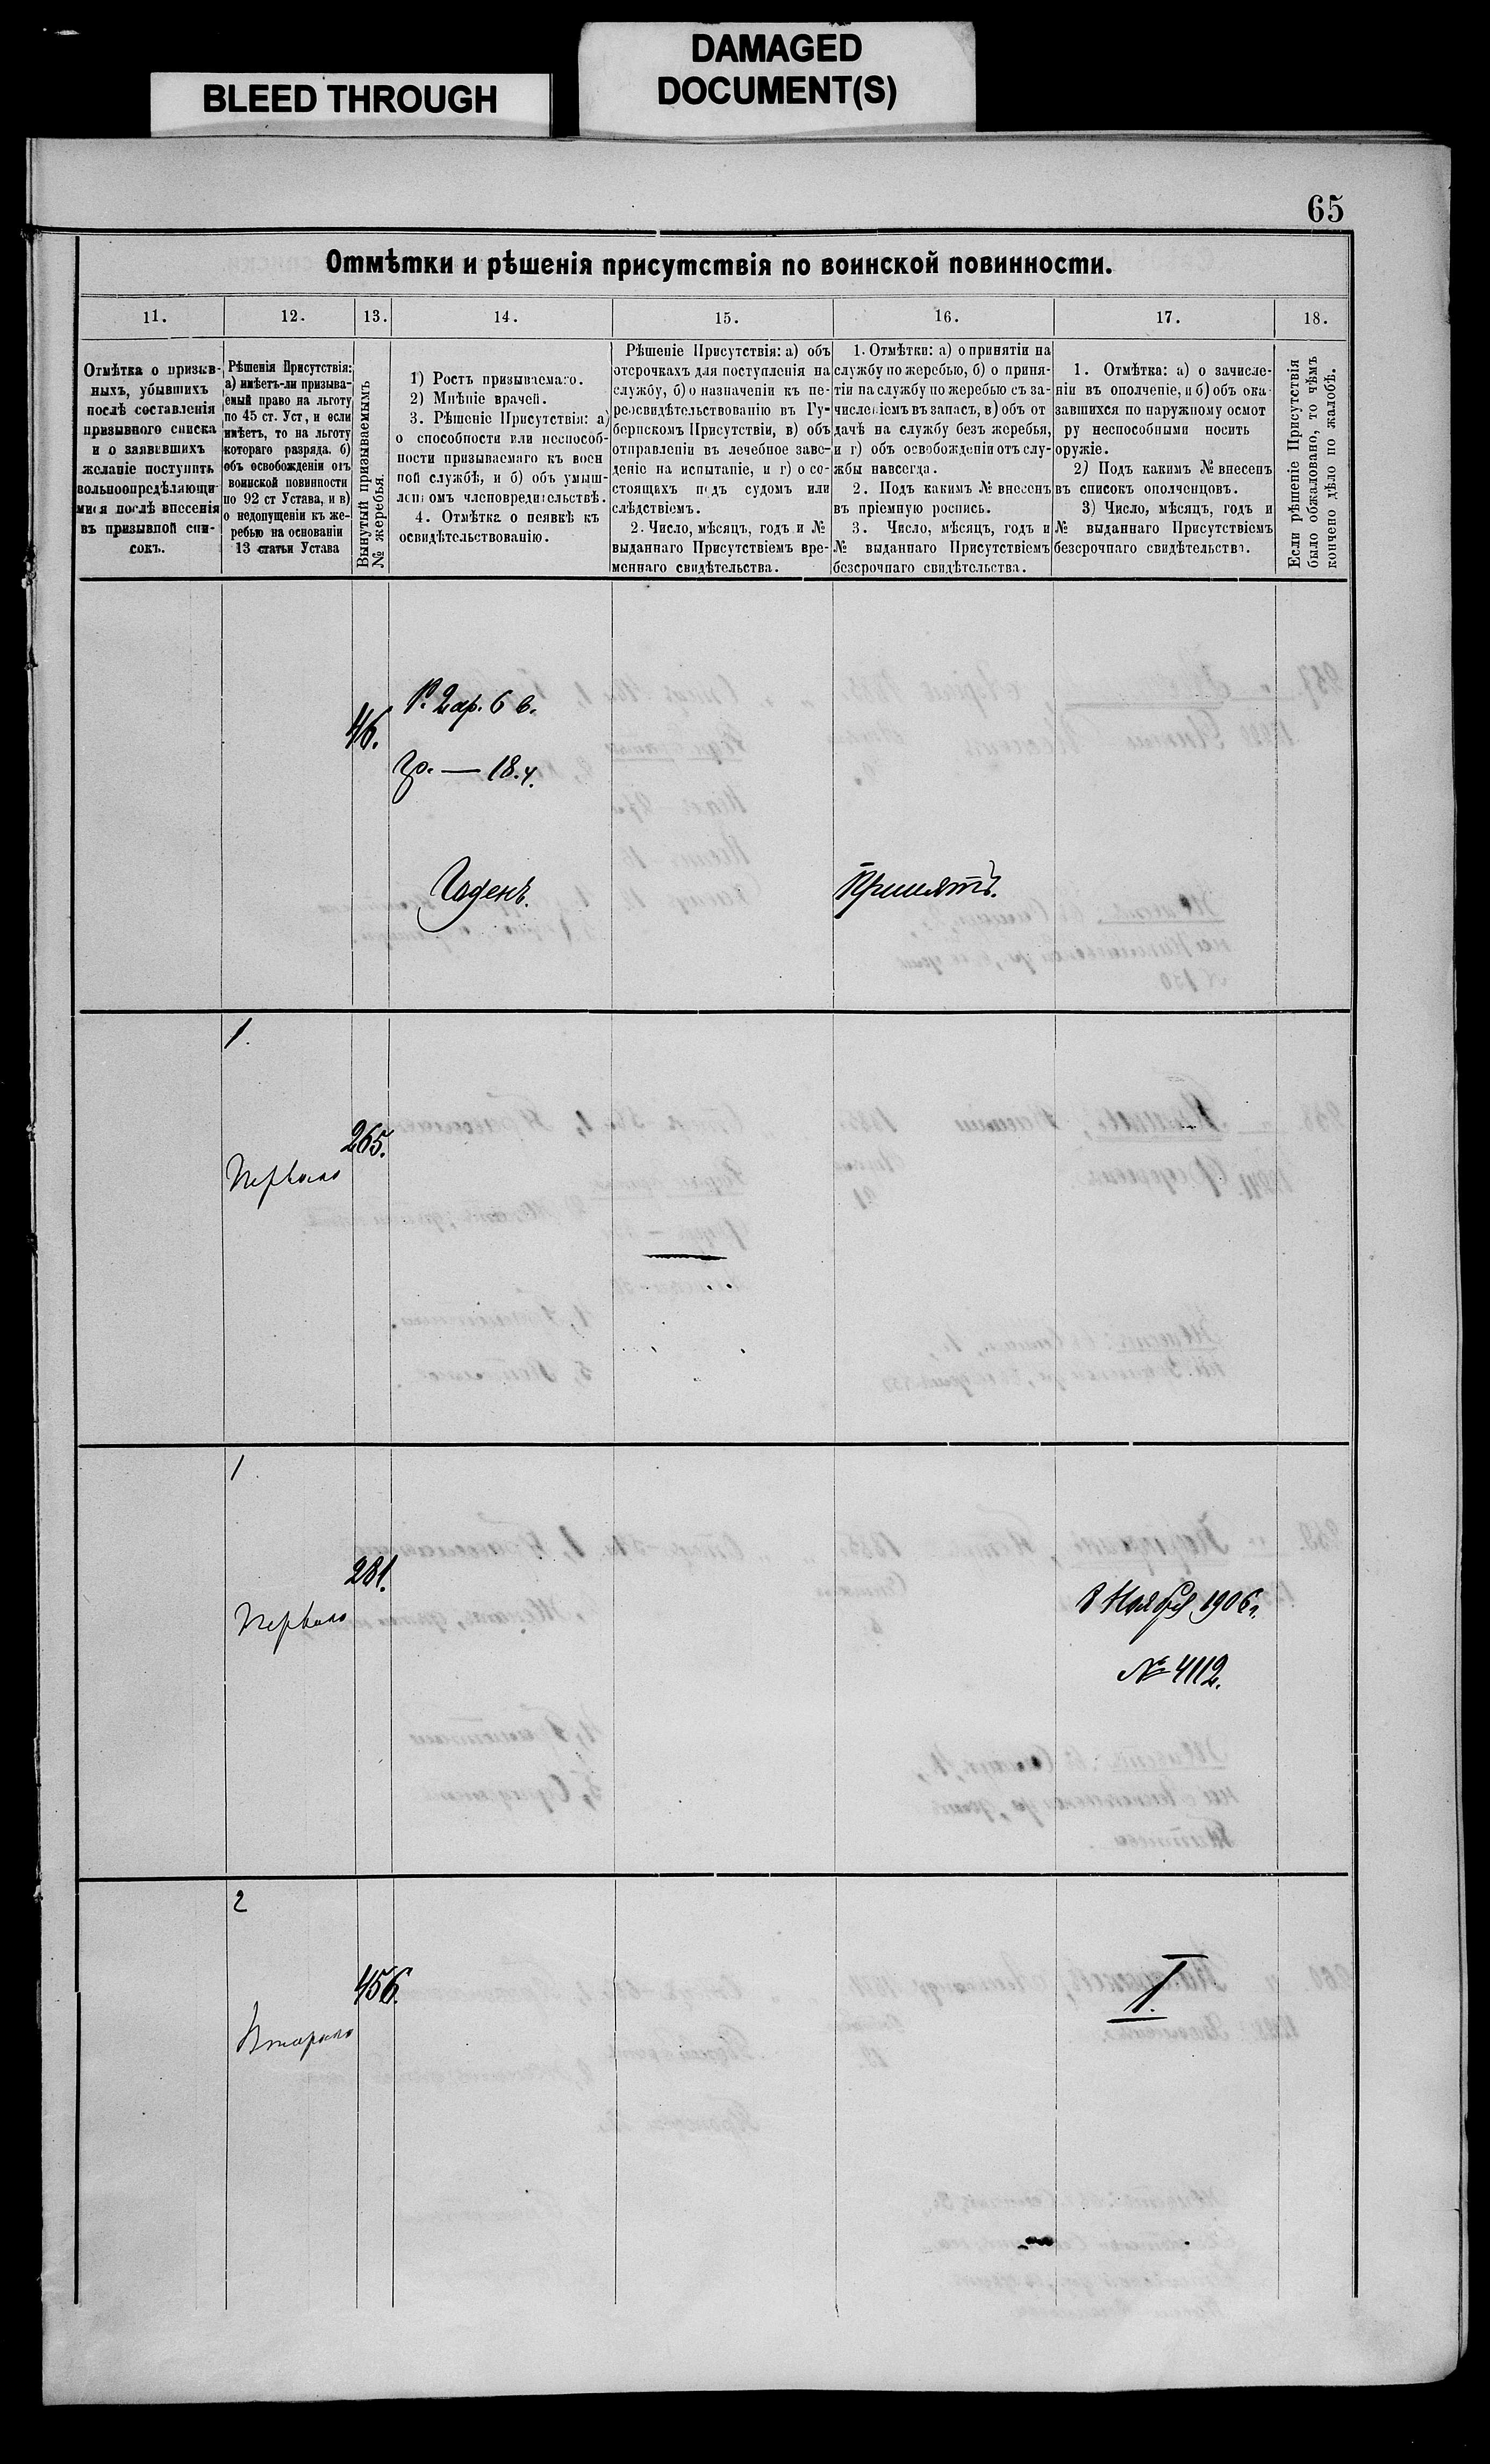 BLEED THROUGH
DAMAGED
DOCUMENT(S)
65
Отмѣтки и рѣшенія присутствія по воинской повинности.
11.
12.
13.
14.
15.
16.
17.
18.
Отмѣтка о призыв-
ныхъ, убывшихъ
послѣ составленія
призывного списка
и о заявившихъ
желаніе поступить
вольноопредѣляющи-
мися послѣ внесенія
въ призывной спи-
сокъ.
Рѣшенія Присутствія:
а) имѣетъ-ли призыва-
емый право на льготу
по 45 ст. Уст, и если
имѣетъ, то на льготу
котораго разряда. б)
объ освобожденіи отъ
воинской повинности
по 92 ст Устава, и в)
о недопущеніи къ же-
ребью на основаніи
13 статьи Устава
Вынутый призываемымъ
№ жеребья.
1) Ростъ призываемаго.
2) Мнѣніе врачей.
3. Рѣшеніе Присутствія: а)
о способности или неспособ-
ности призываемаго къ воен
ной службѣ, и б) объ умыш-
леномъ членовредительствѣ.
4. Отмѣтка о неявкѣ къ
освидѣтельствованію.
Рѣшеніе Присутствія: а) объ
отсрочкахъ для поступленія на
службу, б) о назначеніи къ пе-
реосвидѣтельствованію въ Гу-
бернскомъ Присутствіи, в) объ
отправленіи въ лечебное заве-
деніе на испытаніе, и г) о со-
стоящихъ подъ судомъ или
слѣдствіемъ.
2. Число, мѣсяцъ, годъ и №
выданнаго Присутствіемъ вре-
меннаго свидѣтельства.
1. Отмѣтки: а) о принятіи на
службу по жеребью, б) о приня-
тіи на службу по жеребью съ за-
численіемъ въ запасъ, в) объ от
дачѣ на службу безъ жеребья,
и г) объ освобожденіи отъ слу-
жбы навсегда.
2. Подъ какимъ № внесенъ
въ пріемную роспись.
3. Число, мѣсяцъ, годъ и
№ выданнаго Присутствіемъ
безсрочнаго свидѣтельства.
1. Отмѣтка: а) о зачисле-
ніи въ ополченіе, и б) объ ока
завшихся по наружному осмот
ру неспособными носить
оружіе.
2) Подъ какимъ № внесенъ
въ списокъ ополченцовъ.
3) Число, мѣсяцъ, годъ и
№ выданнаго Присутствіемъ
безсрочнаго свидѣтельства.
Если рѣшеніе Присутствія
было обжаловано, то чѣмъ
кончено дѣло по жалобѣ.
46.
Р. 2 ар. 6 в.
гр. — 18.ч.
Годенъ.
Принятъ.
1.
265.
Перваго
1
281.
Перваго
8 Ноября 1906 г.
№ 4112.
2
456.
Втораго
I.